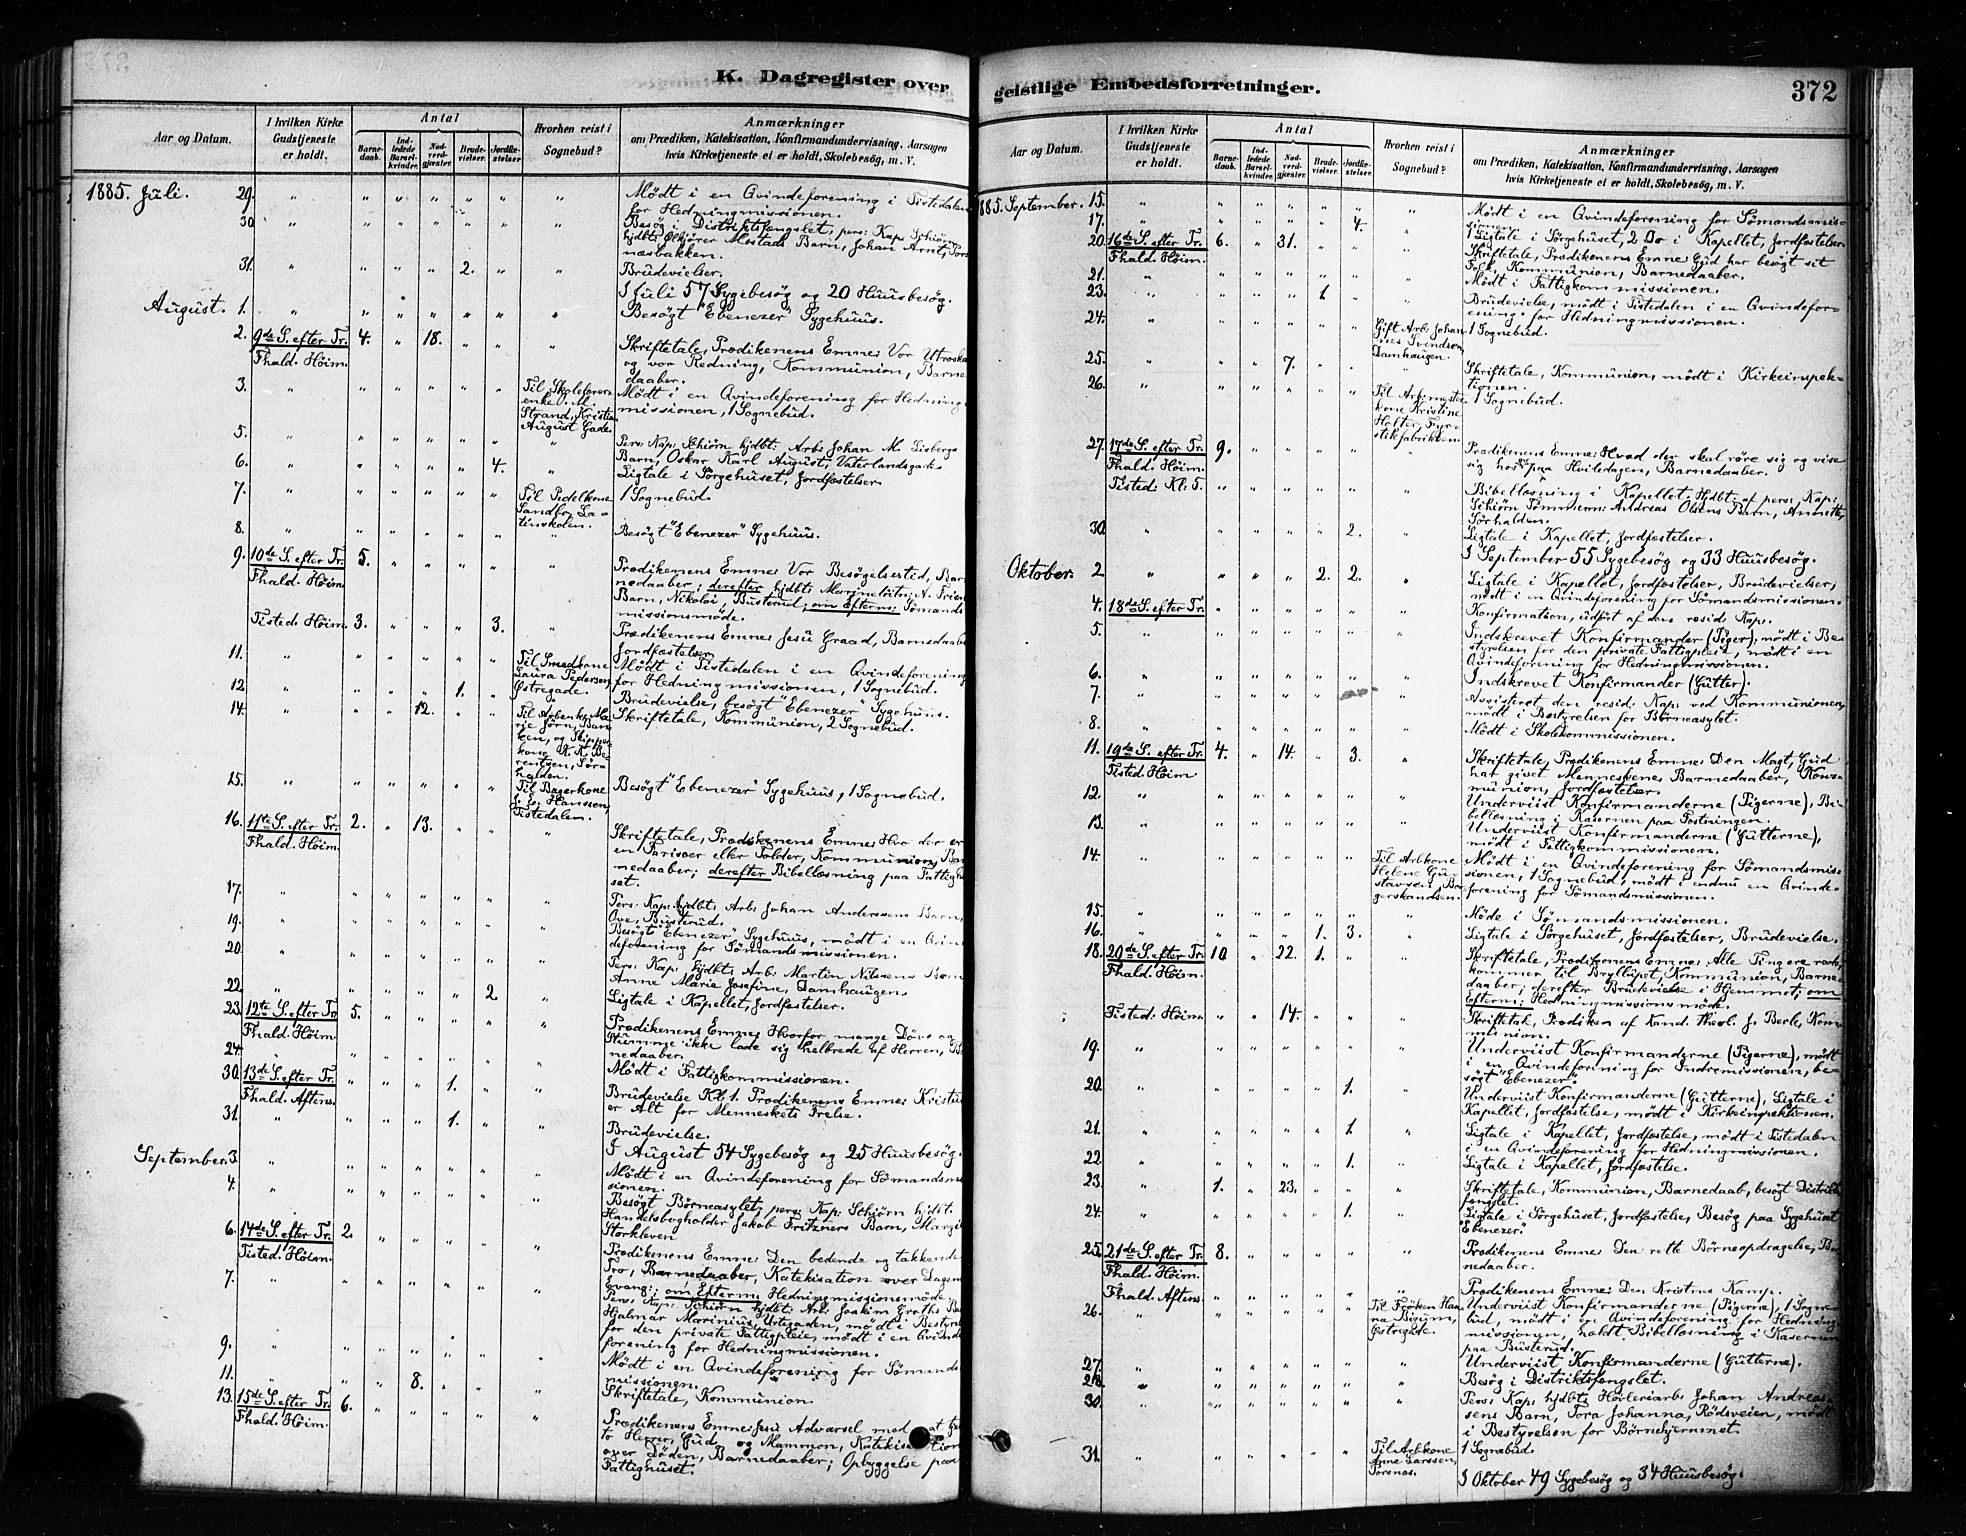 K. Dagregister over
Aar og Datum.
I hvilken Kirke Gudstjeneste er holdt.
Antal
Barnedaab.
Indledede Barselkvinder.
Nadverdgjæster.
Brudevielser.
Jordfæstelser
Hvorhen reist i Sognebud?
Anmærkninger
om Prædiken, Katekisation, Konfirmandundervisning, Aarsagen
hvis Kirketjeneste ei er holdt, Skolebesøg, m. V.
1885. Juli. 29. Mödt i en Qvindeforening i Tistedalen
for Hedningmissionen.
30 Besög i Distriktsfængslet, pers: Kap: Schiörn
hjdbt: Ölkjörer Mostads Barn, Johan Arnt, Tors
næsbakken.
31. 2. Brudevielser.
I Juli 57 Sygebesøg og 20 Huusbesøg.
August. 1. Besögt "Ebenezer" Sygehuus.
2. 9de S. efter Tr. 4. 18. Skriftetale, Prædikenens Emne: Vor Utroska
Fhald. Höim. og vor Redning, Kommunion, Barne
daaber.
3. Til Skoleforer- Mödt i en Qvindeforening for Hedning-
enke M. missionen, 1 Sognebud.
Strand, Kristian
August Gade.
5. Pers: Kap: Schiörn hjdbt: Arb: Johan M. Lisbergs
Barn, Oskar Karl August, Vaterlandsgade
6. 4. Ligtale i Sörgehuset, Jordfæstelser.
7. Til Pedelkone 1 Sognebud.
Sandbo, La-
tinskolen.
8. Besögt "Ebenezer" Sygehuus.
9. 10de S. efter Tr. 5. Prædikenens Emne: Vor Besögelsestid, Bar
Fhald. Höim. nedaaber; derefter hjdbt: A.
Barn, Nikolai, Busterud; om Efterm: Sömands
missionsmöde.
Tisted: Höim. 3. 3. Prædikenens Emne: Jesu Graad, Barnedaaber
Jordfæstelser.
11. Til Smedkone Mödt i Tistedalen i en Qvindeforening
Laura Pedersen, for Hedningmissionen, 1 Sognebud.
Østregade.
12 1. Brudevielse, besøgt "Ebenezer" Sygehuus.
14. 12. Til Arbenke Ma- Skriftetale, Kommunion, 2 Sognebud.
rie Jörn, Ban-
ken, og Skipper-
kone N. K. Be-
rentzen, Sör-
halden.
15. Til Bagerkone Besögt "Ebenezer" Sygehuus, 1 Sognebud.
Hanssen,
Tistedalen.
16. 11te S. efter Tr. 2. 13. Skriftetale, Prædikenens Emne: Hvo der er
Fhald. Höim. en Farisæer eller Tolder, Kommunion, Bar
nedaaber; derefter Bibellæsning paa Fattighu
set.
17. Pers: Kap: hjdbt: Arb: Johan Anderssens Barn,
Ove, Busterud.
19. Besögt "Ebenezer" Sygehuus, mödt i en Qvin
deforening for Sömandsmissionen.
20. Pers: Kap: hjdbt: Arb: Martin Nilsens Barn
Anne Marie Josefine, Damhaugen.
22 2. Ligtale i Kapellet, Jordfæstelser.
23. 12te S. efter Tr. 5. Prædikenens Emne: Hvorfor mange Döve og
Fhald. Höim. Stumme ikke lade sig helbrede af Herren, Ba
nedaaber.
24. Mödt i Fattigkommissionen.
30. 13de S. efter Tr. 1. Brudevielse Kl. 1. Prædikenens Emne: Kristus
Fhald. Aftens. er Alt for Menneskets Frelse.
31. 1. Brudevielse.
I August 54 Sygebesøg og 25 Huusbesøg.
September. 3. Mödt i en Qvindeforening for Sömandsmis
sionen.
4. Besögt Børneasylet, pers: Kap: Schiörn hjdbt:
Handelsbogholder Jakob Fritzners Barn, Margit
Storkleven
6. 14de S. efter Tr. 2. Prædikenens Emne: Den bedende og takkende
Tisted. Höim. Tro, Barnedaaber, Katekisation over Dagens
Evang:; om Efterm: Hedningmissionsmöde.
7. Pers: Kap: Schiörn hjdbt: Arb: Joakim Groths Ba
Hjalmar Marinius, Urtegaden, mödt i Bestyrel
for den private Fattigpleie, mödt i en Qvinde
forening for Hedningmissionen.
9. Mödt i en Qvindeforening for Sömands
missionen.
11. 8. Skriftetale, Kommunion.
13. 15de S. efter Tr. 6. Prædikenens Emne: Jesu Advarsel mod at tje
Fhald. Höim. to Herrer, Gud og Mammon, Katekisation
over Döden, Barnedaaber; Opbyggelse paa
Fattighuset.
geistlige Embedsforretninger.
372
Aar og Datum.
I hvilken Kirke Gudstjeneste er holdt.
Antal
Barnedaab.
Indledede Barselkvinder.
Nadverdgjæster.
Brudevielser.
Jordfæstelser.
Hvorhen reist i Sognebud?
Anmærkninger
om Prædiken, Katekisation, Konfirmandundervisning, Aarsagen
hvis Kirketjeneste ei er holdt, Skolebesøg, m. V.
885. September. 15. Mödt i en Qvindeforening for Sömandsmis-
sionen.
17. 4. 1 Ligtale i Sörgehuset, 2 Do i Kapellet, Jordfæstelser.
20. 16de S. efter Tr. 6. 31. Skriftetale, Prædikenens Emne: Gud har besögt sit
Fhald. Höim. Folk, Kommunion, Barnedaaber.
21. Mödt i Fattigkommissionen.
23. 1. Brudevielse, mödt i Tistedalen i en Qvindefor-
ening for Hedningmissionen.
24. Gift Arb: Johan- 1 Sognebud.
nes Svendsen,
Damhaugen.
25. 7. Skriftetale, Kommunion, mödt i Kirkeinspek-
tionen.
26. Til 1 Sognebud.
kone Kristine
Holter, Fyr-
stikfabrikken.
27. 17de S. efter Tr. 9. Prædikenens Emne: Hvad der skal röre sig og vise
Fhald. Höim. sig hos os paa Hviledagen, Barnedaaber.
Tisted: Kl: 5. Bibellæsning i Kapellet. Hjdbt: af pers: Kap:
Schiörn Tömmerm: Andreas Olsens Barn, Annette,
Sörhalden.
30. 2. Ligtale i Kapellet, Jordfæstelser.
I September 55 Sygebesøg og 33 Huusbesøg.
Oktober. 2 2. 2. Ligtale i Kapellet, Jordfæstelser, Brudevielser,
mödt i en Qvindeforening for Sömandsmissionen.
4. 18de S. efter Tr. Konfirmation, udfört af den resid: Kap:
5. Indskrevet Konfirmander (Piger), mödt i Be-
styrelsen for den private Fattigpleie, mödt i en
Qvindeforening for Hedningmissionen.
6. Indskrevet Konfirmander (Gutter).
7. Assisteret den resid: Kap: ved Kommunionen,
mödt i Bestyrelsen for Børneasylet.
8. Mödt i Skolekommissionen.
11. 19de S. efter Tr. 4. 14. 3. Skriftetale, Prædikenens Emne: Den Magt, Gud
Tisted. Höim har givet Menneskene, Barnedaaber, Kom-
munion, Jordfæstelser.
12. Underviist Konfirmanderne (Pigerne), Bi-
bellæsning i Kasernen paa Fæstningen.
13. Underviist Konfirmanderne (Gutterne),
mödt i Fattigkommissionen.
14. Til Arbkone Mödt i en Qvindeforening for Sömandsmis-
Helene Gu- sionen, 1 Sognebud, mödt i endnu en Qvinde-
stavsen, Ba- forening for Sömandsmissionen.
gerskandsen.
15. Möde i Sömandsmissionen.
16. 1. 3. Ligtale i Sörgehuset, Jordfæstelser, Brudevielse.
18. 20de S. efter Tr. 10 22. 1. Skriftetale, Prædikenens Emne: Alle Ting ere rede,
Fhald. Höim. kommer til Bryllupet, Kommunion, Barne-
daaber; derefter Brudevielse i Hjemmet; om
Efterm: Hedningmissionsmöde.
Tisted: Höim. 14. Skriftetale, Prædiken af Kand. theol. J. Berle, Kom-
munion.
19. Underviist Konfirmanderne (Pigerne), mödt
i en Qvindeforening for Indremissionen, be-
sögt "Ebenezer".
20. 1. Underviist Konfirmanderne (Gutterne), Ligtale i
Kapellet, Jordfæstelse, mödt i Kirkeinspektionen.
21. 1 Ligtale i Kapellet, Jordfæstelse, mödt i Tistedalen
i en Qvindeforening for Hedningmissionen.
22. 1. Ligtale i Kapellet, Jordfæstelse.
23. 1. 23. Skriftetale, Kommunion, Barnedaab, besögt Distrikts
fængslet.
24. 1. Ligtale i Sörgehuset, Jordfæstelse, Besög paa Sygehuset
"Ebenezer".
25. 21de S. efter Tr. 8. Prædikenens Emne: Den rette Børneopdragelse, Bar
Fhald. Höim. nedaaber.
Fhald. Aftens. Prædikenens Emne: Den Kristnes Kamp.
26. Til Fröken Han- Underviist Konfirmanderne (Pigerne), 1 Sogne-
na Bigum, bud, mödt i en Qvindeforening for Hedning
Østregade. missionen, holdt Bibellæsning i Kasernen
paa Busterud.
27. Underviist Konfirmanderne (Gutterne).
28. Besög i Distriktsfængslet.
30. Pers: Kap: hjdbt: Høvleriarb: Johan Andreas-
sens Barn, Tora Johanna, Rødsveien, mödt
i Bestyrelsen for Børnehjemmet.
31. Til Arbkone 1 Sognebud.
Anne Larssen,
Torsnæs.
I Oktober 49 Sygebesøg og 34 Huusbesøg.